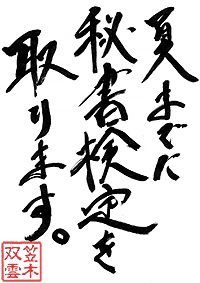 夏までに
秘書検定を
取ります。
笠木
双雲